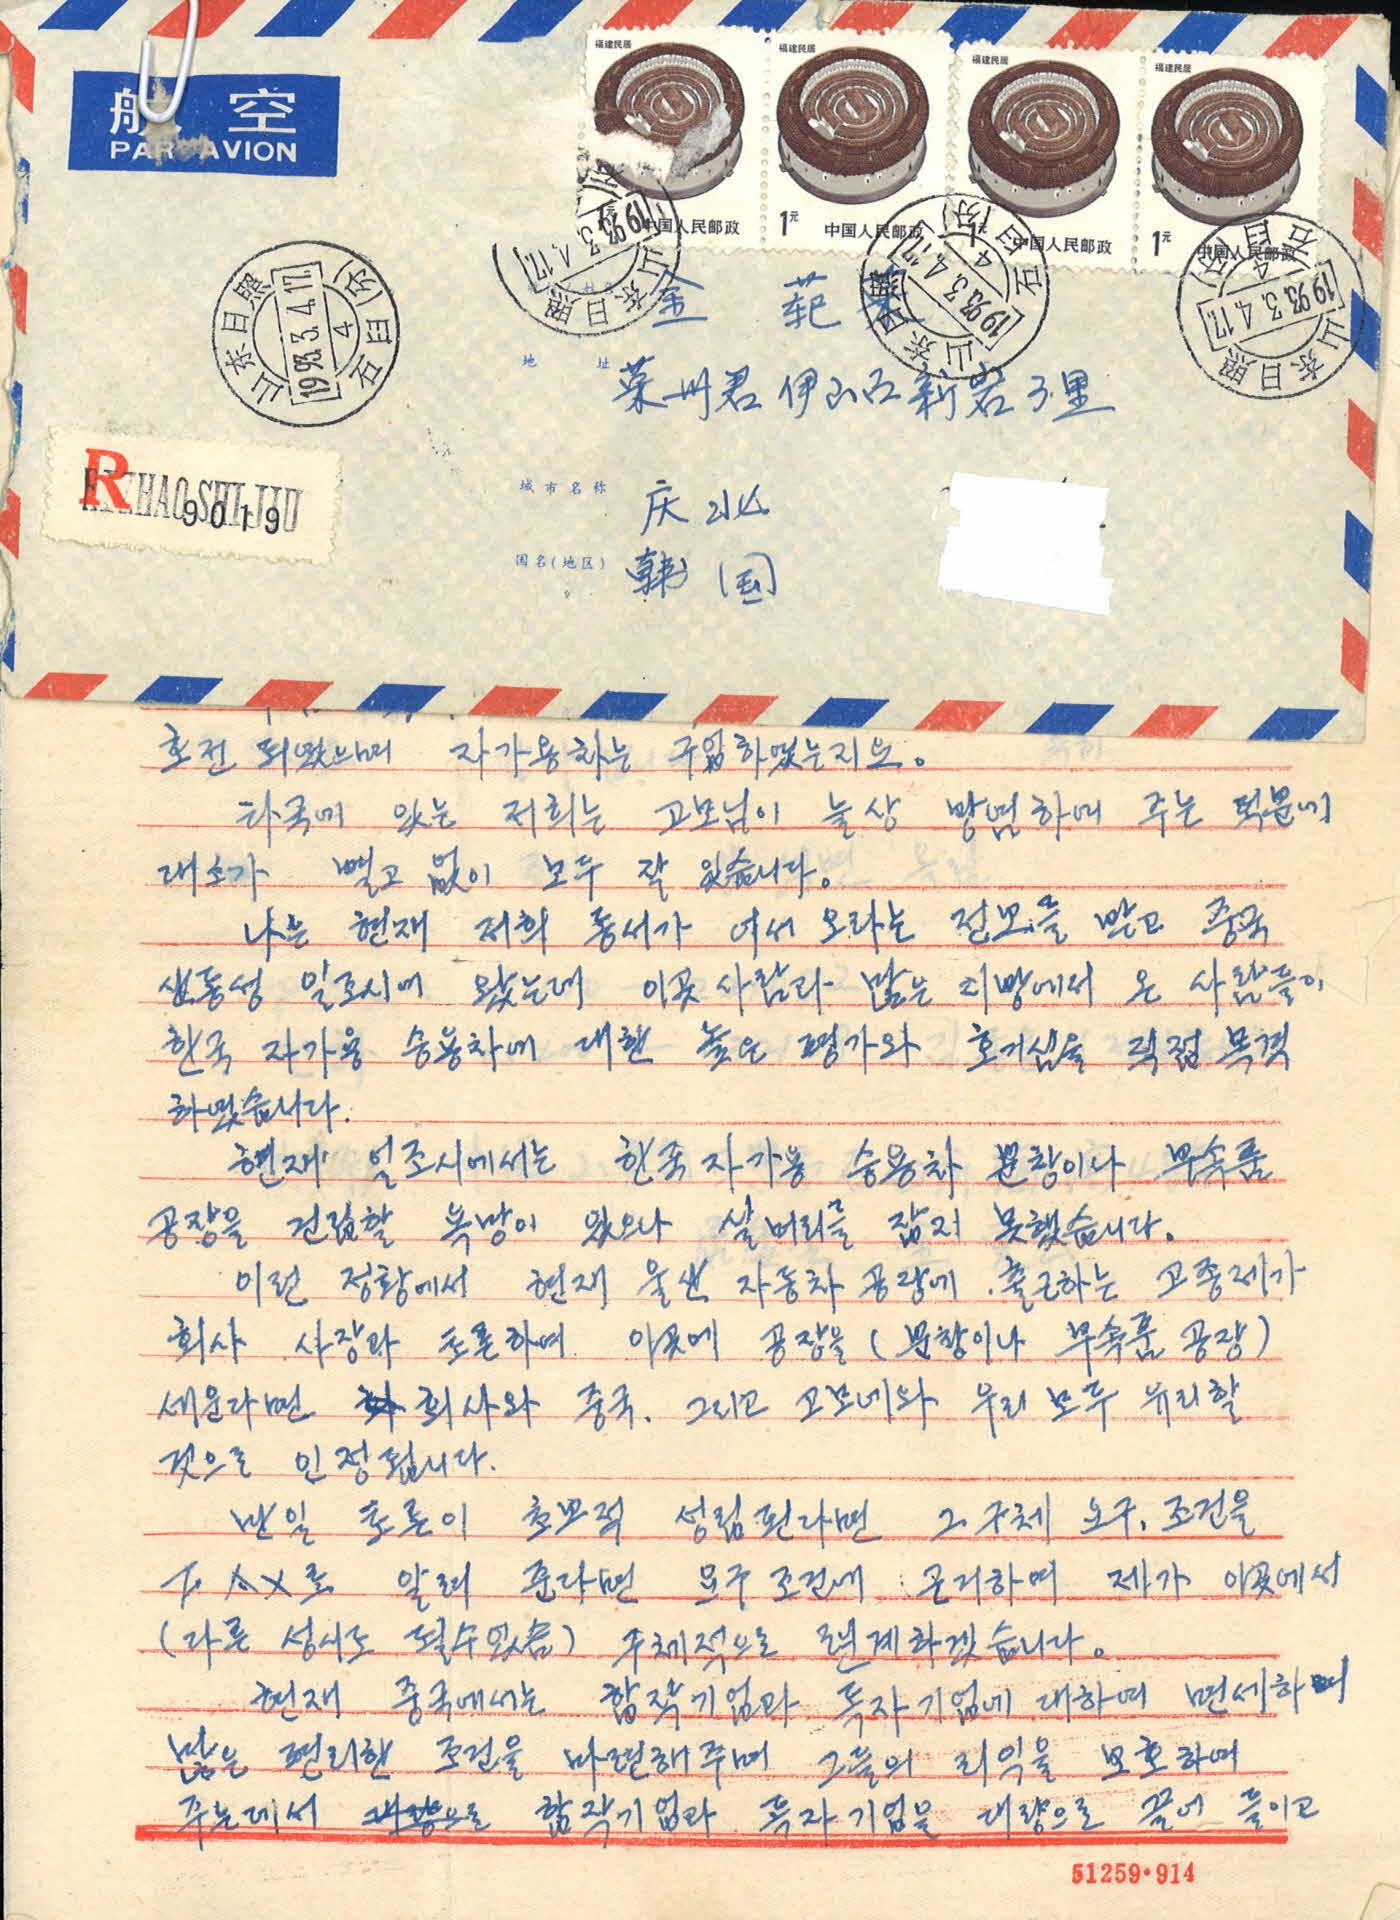 航空
PAR AVION
福建民居 福建民居 福建民居 福建民居
中国人民邮政 1元 中国人民邮政 1元 中国人民邮政 1元 中国人民邮政
山东日照 1993.3.4.17. 4 石臼(分)
山东日照 1993.3.4.17.
山东日照 1993.3.4.17. 4 石臼(分)
山东日照 1993.3.4.17. 4 石臼
金
地址
伊 新 里
R
9019
城市名称
庆北
国名(地区)
韩国
호전 되였으며 자가용차는 구입하였는지요.
타국에 있는 저희는 고모님이 늘상 방념하여 주는 덕분에
대소가 별고 없이 모두 잘 있습니다.
나는 현재 저희 동서가 어서 오라는 전보를 받고 중국
산동성 일조시에 왔는데 이곳 사람과 많은 지방에서 온 사람들이
한국 자가용 승용차에 대한 높은 평가와 호기심을 직접 목격
하였습니다.
현재 일조시에서는 한국 자가용 승용차 분창이나 부속품
공장을 건립할 욕망이 있으나 실머리를 잡지 못했습니다.
이런 정황에서 현재 울산 자동차 공장에 출근하는 고종제가
회사 사장과 토론하여 이곳에 공장을 (분창이나 부속품 공장)
세운다면 회사와 중국. 그리고 고모네와 우리 모두 유리할
것으로 인정됩니다.
만일 토론이 초보적 성립된다면 그 구체 요구, 조건을
FAX로 알려 준다면 요구 조건에 근거하여 제가 이곳에서
(다른 성시도 될수있음) 구체적으로 련계하겠습니다.
현재 중국에서는 합작기업과 독자기업에 대하여 면세하며
많은 편리한 조건을 마련해주며 그들의 리익을 보호하여
주는데서 합작기업과 독자기업을 대량으로 끌어 들이고
51259·914